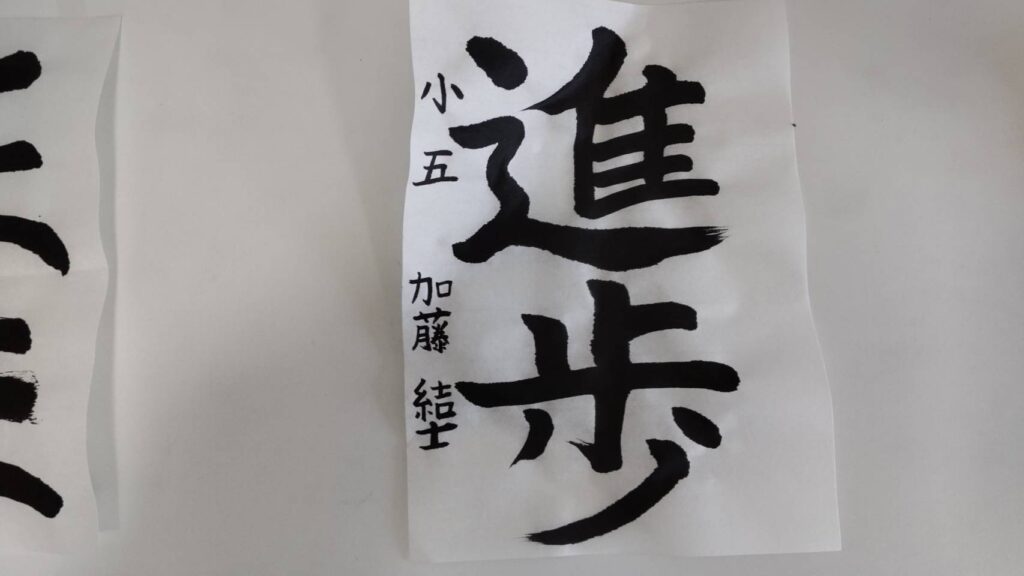 進歩
小五 加藤 結士